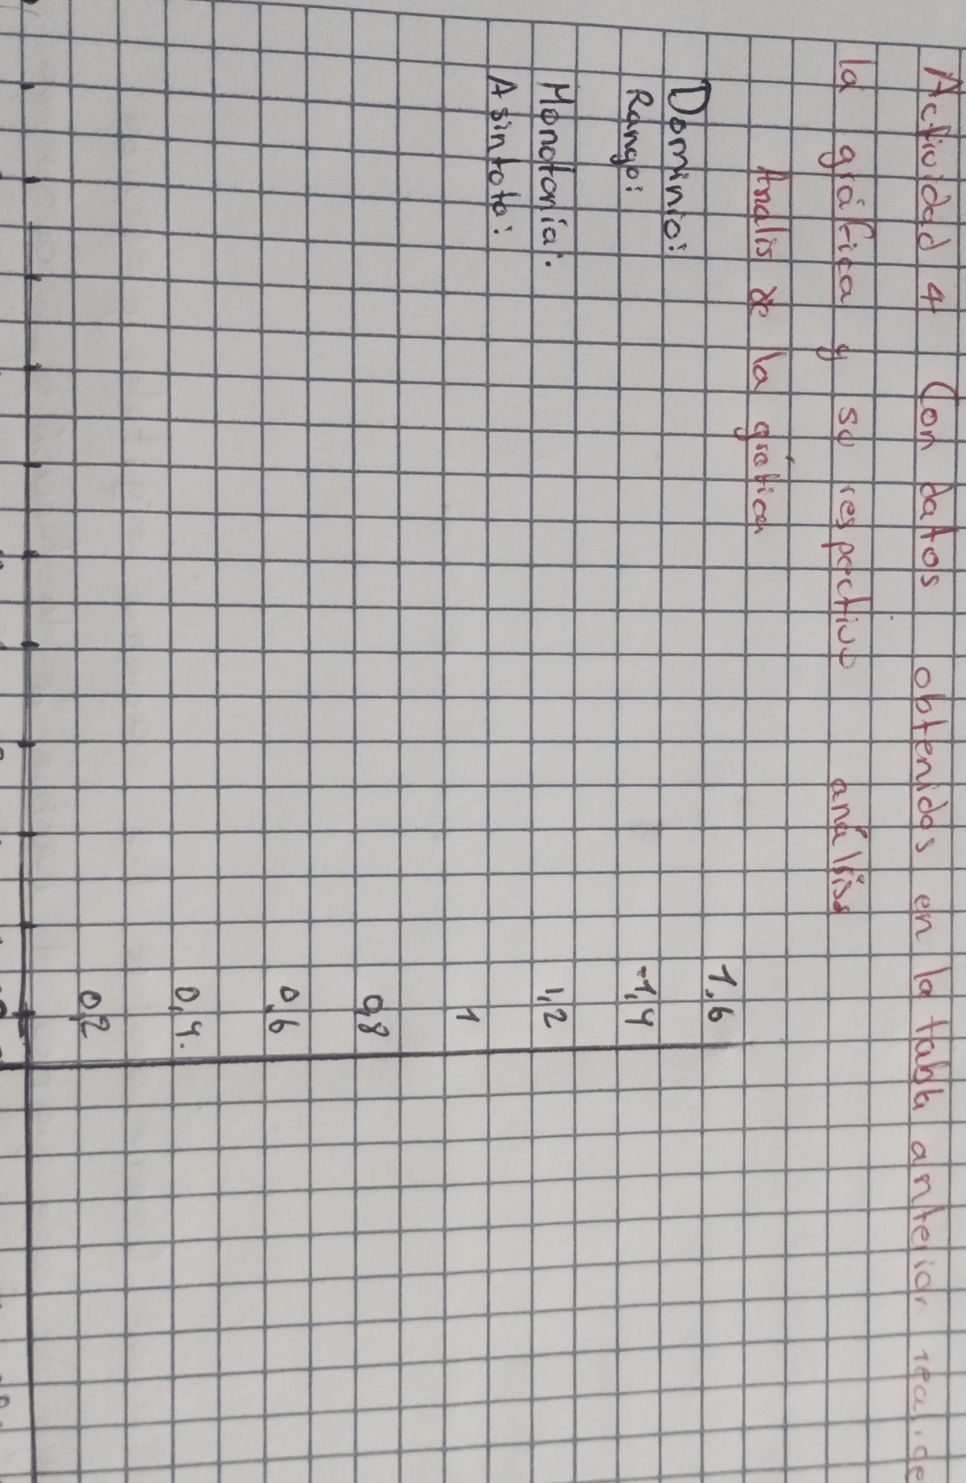 Actividad 4 Con datos obtenidos en la tabla anterior realice
la gráfica y su respectivo análisis
Analis de la gráfica
Dominio:
Rango:
Monotonía:
Asintota:
1,6
-1,4
1,2
1
0,8
0,6
0,4.
0,2